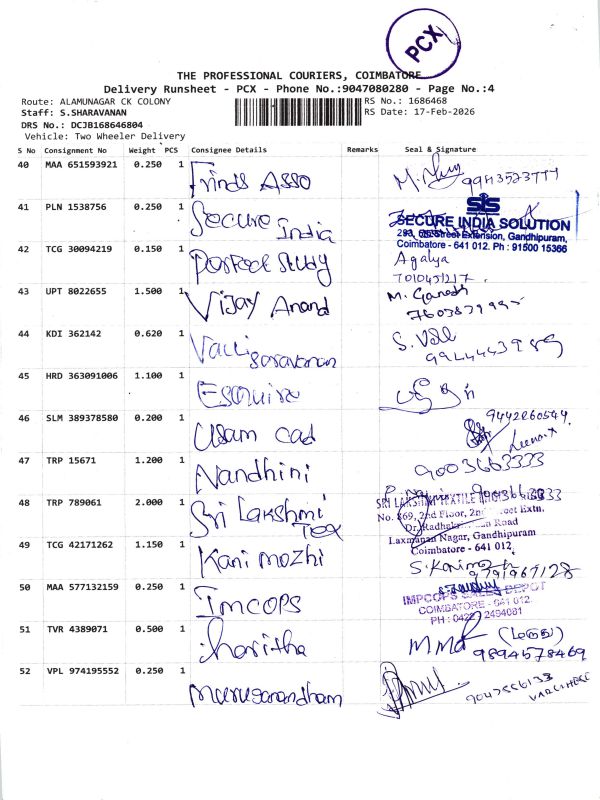 PCX
THE PROFESSIONAL COURIERS, COIMBATORE
Delivery Runsheet - PCX - Phone No.:9047080280 - Page No.:4
Route: ALAMUNAGAR CK COLONY
RS No.: 1686468
Staff: S.SHARAVANAN
RS Date: 17-Feb-2026
DRS No.: DCJB168646804
Vehicle: Two Wheeler Delivery
S No Consignment No Weight PCS Consignee Details Remarks Seal & Signature
40 MAA 651593921 0.250 1 Frinds Asso
41 PLN 1538756 0.250 1 Secure India
SiS
SECURE INDIA SOLUTION
Street Extension, Gandhipuram,
Coimbatore - 641 012. Ph : 91500 15366
42 TCG 30094219 0.150 1 Perfect Study Agalya
43 UPT 8022655 1.500 1 Vijay Anand M. Ganesh
44 KDI 362142 0.620 1 Valli Saravanan
45 HRD 363091006 1.100 1 Esquire
46 SLM 389378580 0.200 1 Usam Cad 9442260549
47 TRP 15671 1.200 1 Nandhini 9003663333
48 TRP 789061 2.000 1 Sri Lakshmi Tex
SRI LAKSHMI TEXTILE
No. 869, 2nd Floor, 2nd Street Extn.
Road
Laxmanan Nagar, Gandhipuram
Coimbatore - 641 012
49 TCG 42171262 1.150 1 Kani mozhi
50 MAA 577132159 0.250 1 Imcops
IMPCOPS SALES DEPOT
COIMBATORE - 641 012.
PH : 0422 2494081
51 TVR 4389071 0.500 1 haritha
9894578469
52 VPL 974195552 0.250 1 Muruganandham